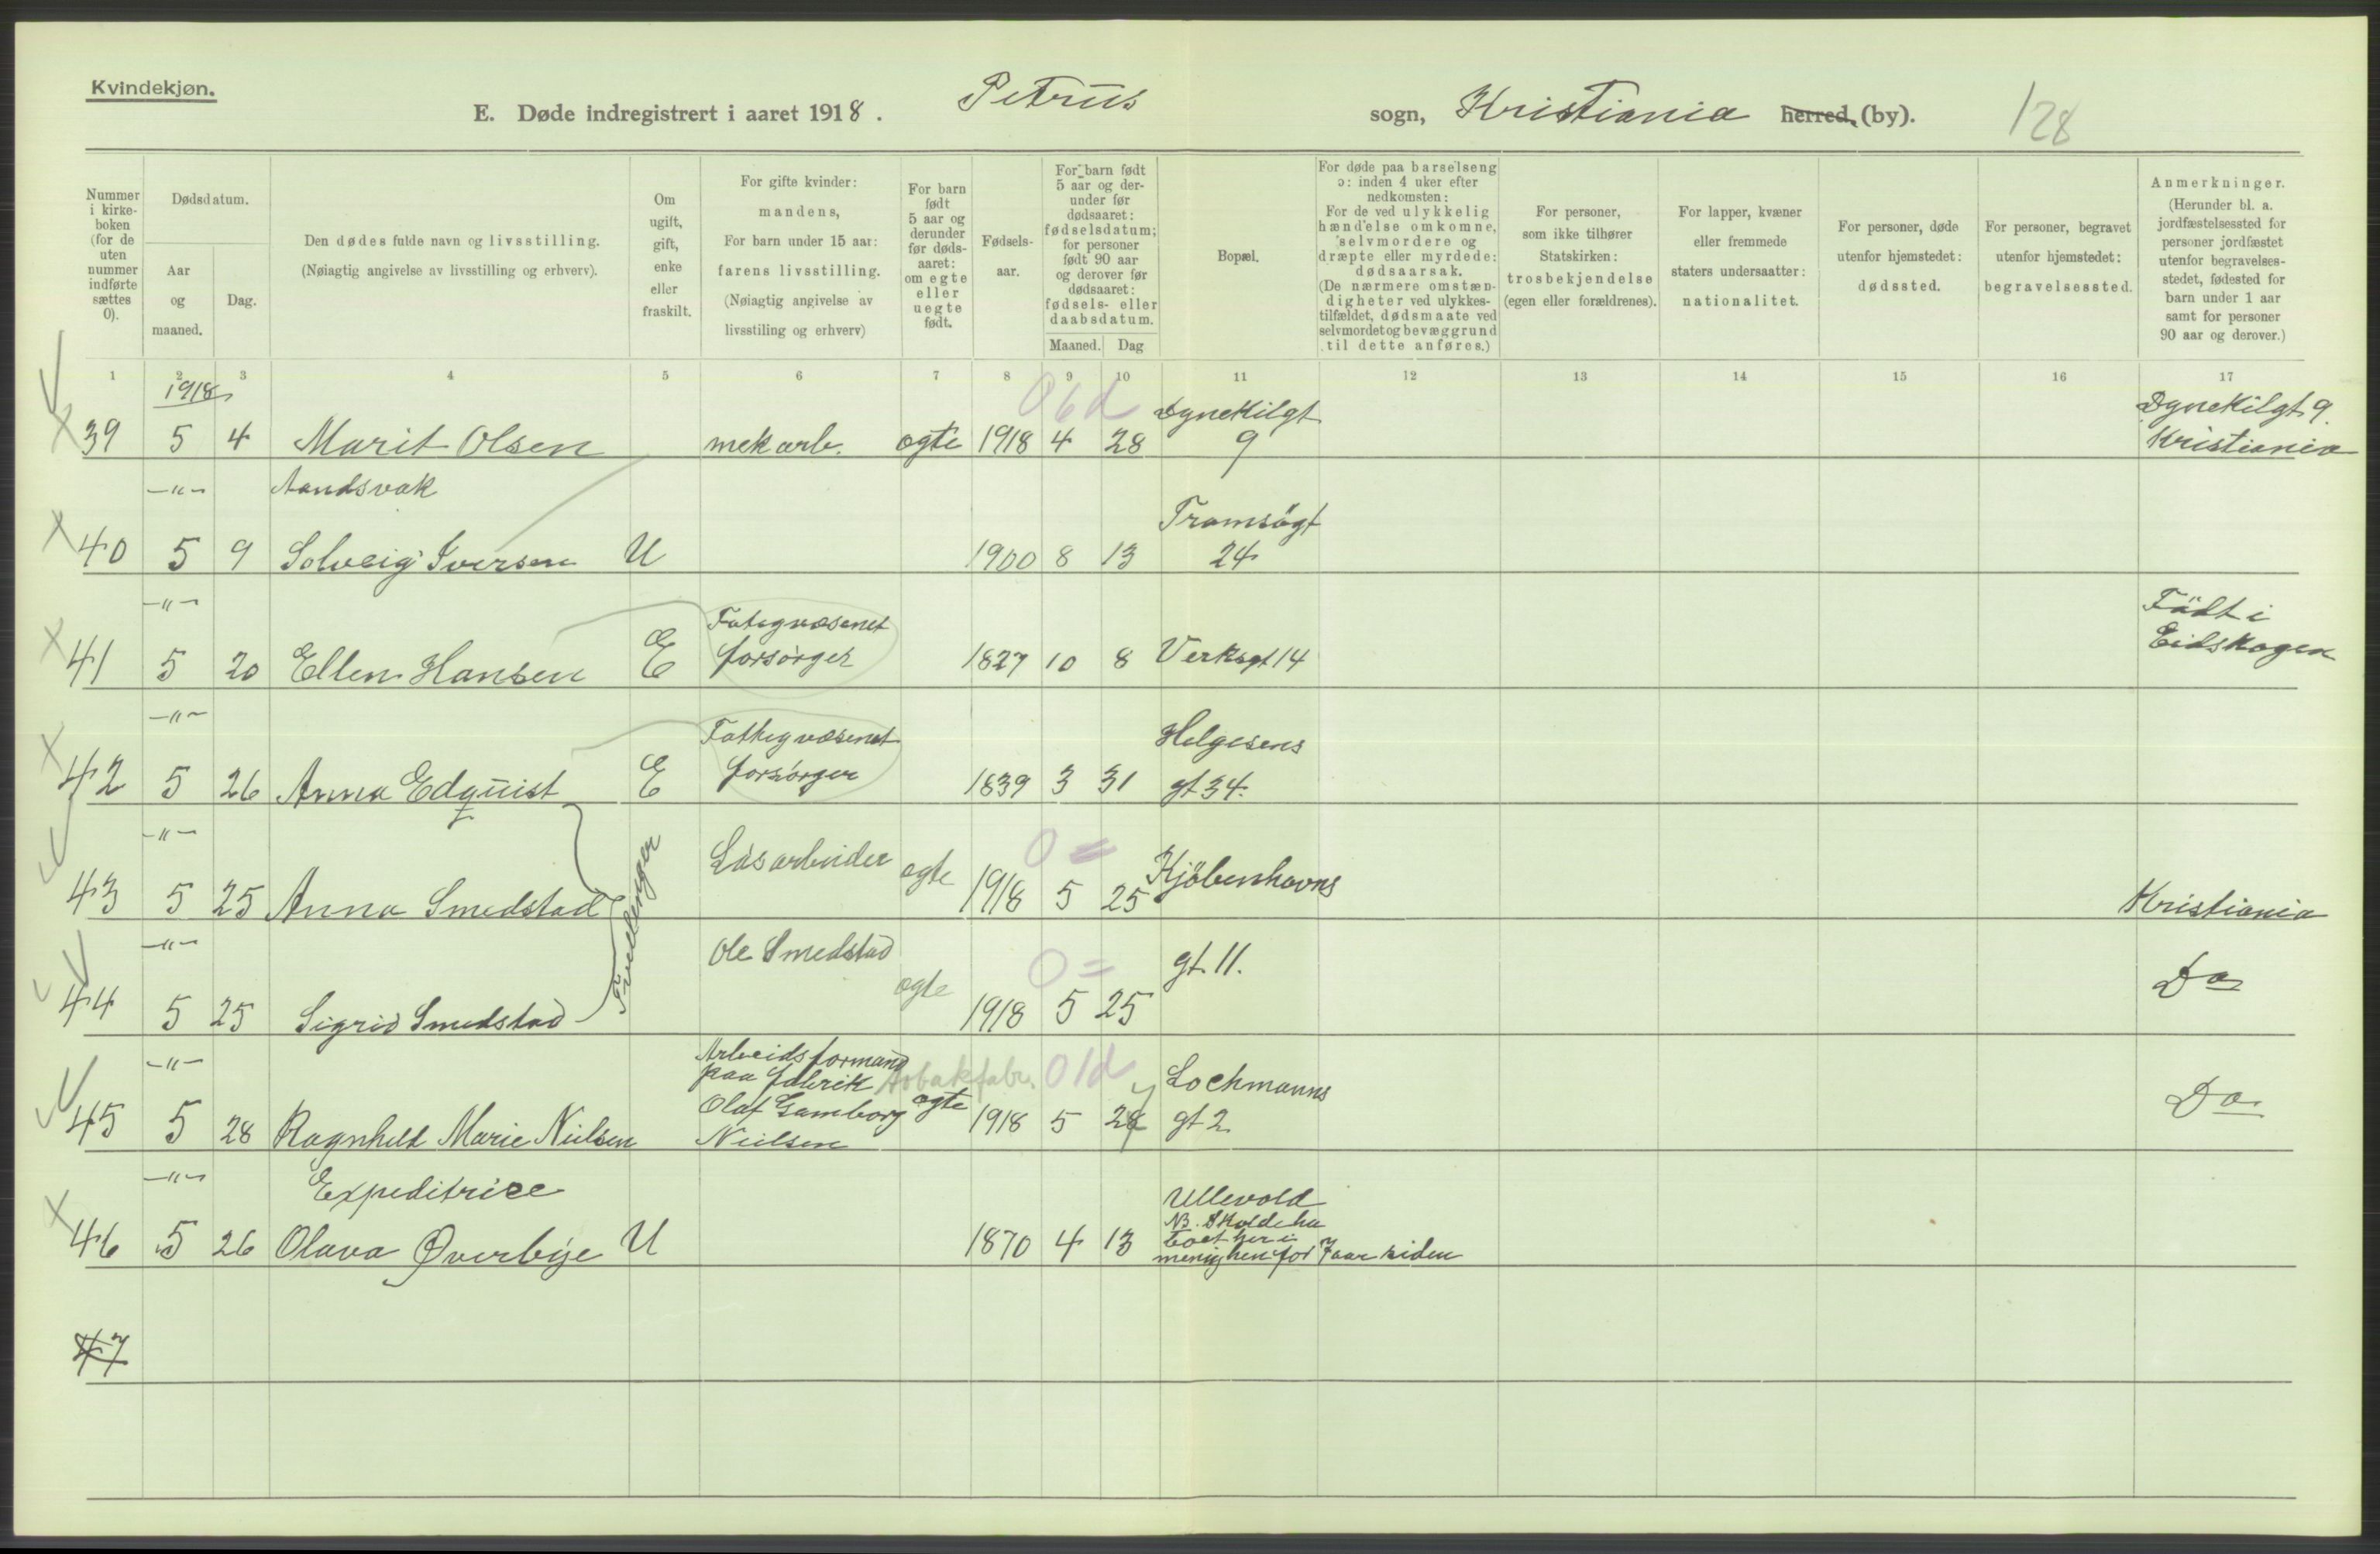 Kvindekjøn.
E. Døde indregistrert i aaret 1918. Petrus sogn, Kristiania herred, (by). 128
Nummer i kirke-boken (for de uten nummer indførte sættes 0).
Dødsdatum.
Aar og maaned.
Dag.
Den dødes fulde navn og livsstilling.
(Nøiagtig angivelse av livsstilling og erhverv).
Om ugift, gift, enke eller fraskilt.
For gifte kvinder: mandens,
For barn under 15 aar: farens livsstilling.
(Nøiagtig angivelse av livsstiling og erhverv)
For barn født 5 aar og derunder før døds-aaret: om egte eller uegte født.
Fødsels-aar.
For barn født 5 aar og der-under før dødsaaret: fødselsdatum; for personer født 90 aar og derover før dødsaaret: fødsels- eller daabsdatum.
Maaned. Dag
Bopæl.
For døde paa barselseng ɔ: inden 4 uker efter nedkomsten:
For de ved ulykkelig hændelse omkomne, selvmordere og dræpte eller myrdede: dødsaarsak.
(De nærmere omstæn-digheter ved ulykkes-tilfældet, dødsmaate ved selvmordet og bevæggrund til dette anføres.)
For personer, som ikke tilhører Statskirken: trosbekjendelse (egen eller forældrenes).
For lapper, kvæner eller fremmede staters undersaatter: nationalitet.
For personer, døde utenfor hjemstedet: dødssted.
For personer, begravet utenfor hjemstedet: begravelsessted.
Anmerkninger.
(Herunder bl. a. jordfæstelsessted for personer jordfæstet utenfor begravelses-stedet, fødested for barn under 1 aar samt for personer 90 aar og derover.)
1 2 3 4 5 6 7 8 9 10 11 12 13 14 15 16 17
1918
06d Dynekilgt Dynekilgt 9.
39 5 4 Marit Olsen mek arb. egte 1918 4 28 9 Kristiania
—"— Aandsvak
Tromsögt
40 5 9 Solveig Iversen U 1900 8 13 24
—"— Fatigvæsenet Födt i
41 5 20 Ellen Hansen E forsørger 1827 10 8 Verksgt 14 Eidskogen
—"— Fattigvæsenet Helgesens
42 5 26 Anna Edquist E forsørger 1839 3 31 gt 34.
—"— Låsarbeider 0 =
43 5 25 Anna Smedstad egte 1918 5 25 Kjöbenhavns Kristiania
Tvillinger
—"— Ole Smedstad 0 = gt. 11.
44 5 25 Sigrid Smedstad egte 1918 5 25 Do
—"— Arbeidsformand
paa fabrik 01d Lochmanns
45 5 28 Ragnhild Marie Nielsen Olaf Gamborg Nielsen egte 1918 5 28 7 gt 2 Do
—"— Expeditrice Ullevold
46 5 26 Olava Øverbye U 1870 4 13 NB. Skolde ha
boet her i
menighen for 7 aar siden
47